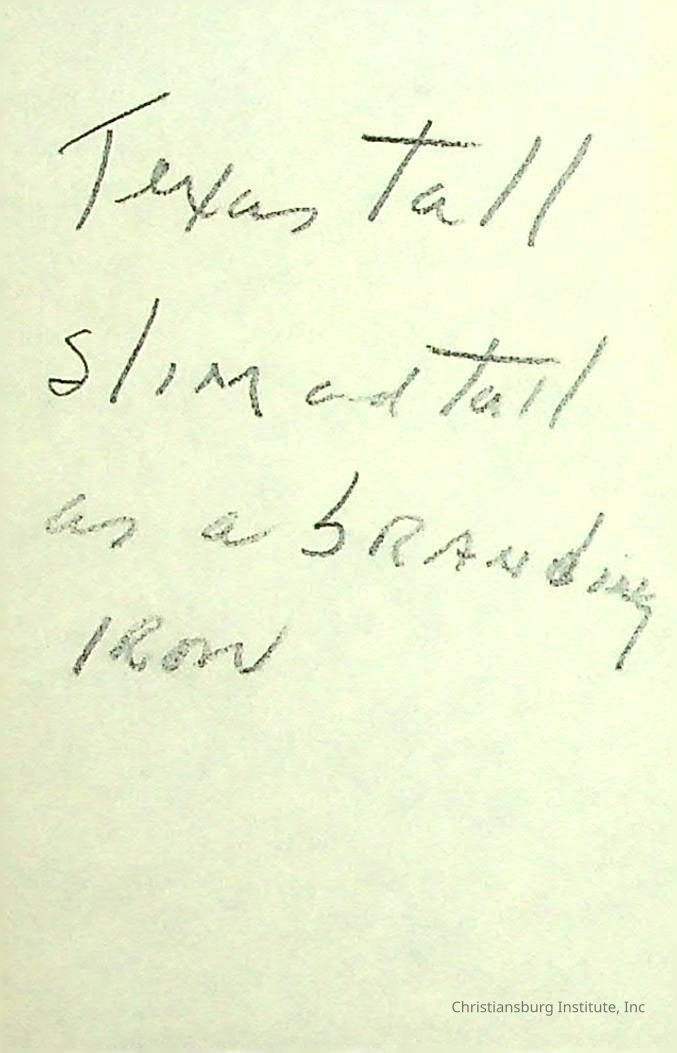 Texas Tall
Slim and tall
as a bRANding
IRON
Christiansburg Institute, Inc